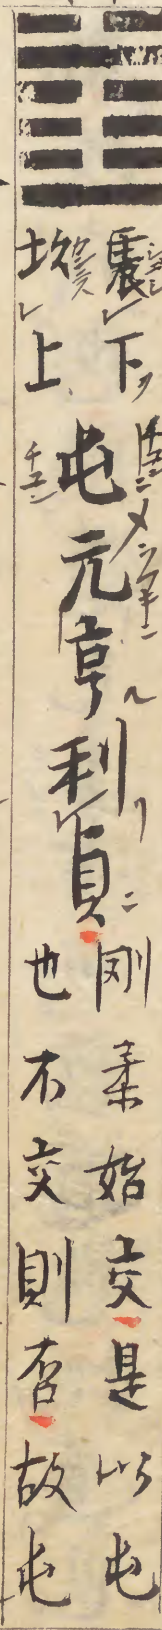 震下
坎上
屯元亨利貞
剛柔始交是以屯
也不交則否故屯